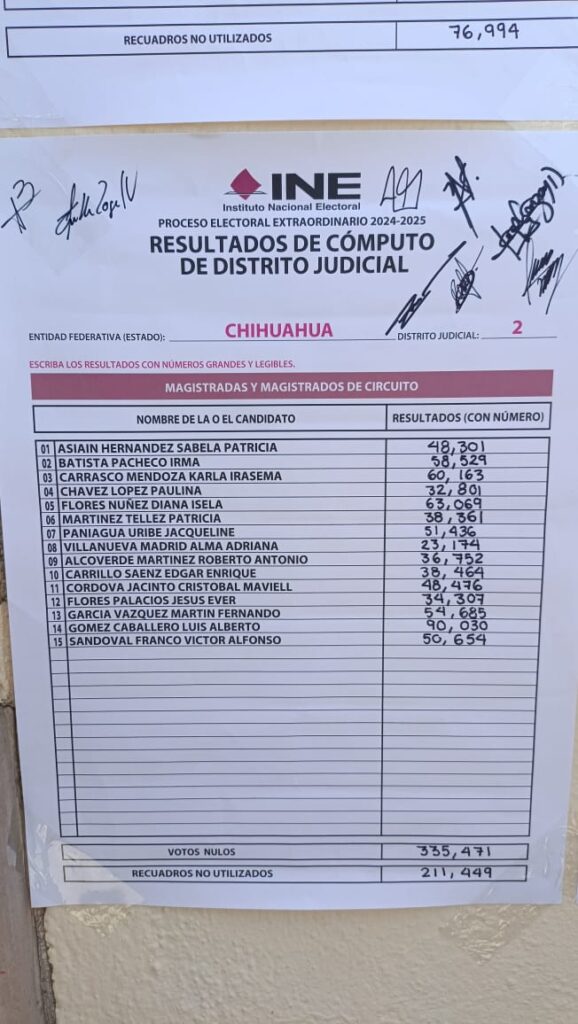 RECUADROS NO UTILIZADOS 76,994
INE
Instituto Nacional Electoral
PROCESO ELECTORAL EXTRAORDINARIO 2024-2025
RESULTADOS DE CÓMPUTO
DE DISTRITO JUDICIAL
ENTIDAD FEDERATIVA (ESTADO): CHIHUAHUA DISTRITO JUDICIAL: 2
ESCRIBA LOS RESULTADOS CON NÚMEROS GRANDES Y LEGIBLES.
MAGISTRADAS Y MAGISTRADOS DE CIRCUITO
NOMBRE DE LA O EL CANDIDATO RESULTADOS (CON NÚMERO)
01 ASIAIN HERNANDEZ SABELA PATRICIA 48,301
02 BATISTA PACHECO IRMA 58,529
03 CARRASCO MENDOZA KARLA IRASEMA 60,163
04 CHAVEZ LOPEZ PAULINA 32,801
05 FLORES NUÑEZ DIANA ISELA 63,069
06 MARTINEZ TELLEZ PATRICIA 38,361
07 PANIAGUA URIBE JACQUELINE 51,436
08 VILLANUEVA MADRID ALMA ADRIANA 23,174
09 ALCOVERDE MARTINEZ ROBERTO ANTONIO 36,752
10 CARRILLO SAENZ EDGAR ENRIQUE 38,464
11 CORDOVA JACINTO CRISTOBAL MAVIELL 48,476
12 FLORES PALACIOS JESUS EVER 34,307
13 GARCIA VAZQUEZ MARTIN FERNANDO 54,685
14 GOMEZ CABALLERO LUIS ALBERTO 90,030
15 SANDOVAL FRANCO VICTOR ALFONSO 50,654
VOTOS NULOS 335,471
RECUADROS NO UTILIZADOS 211,449